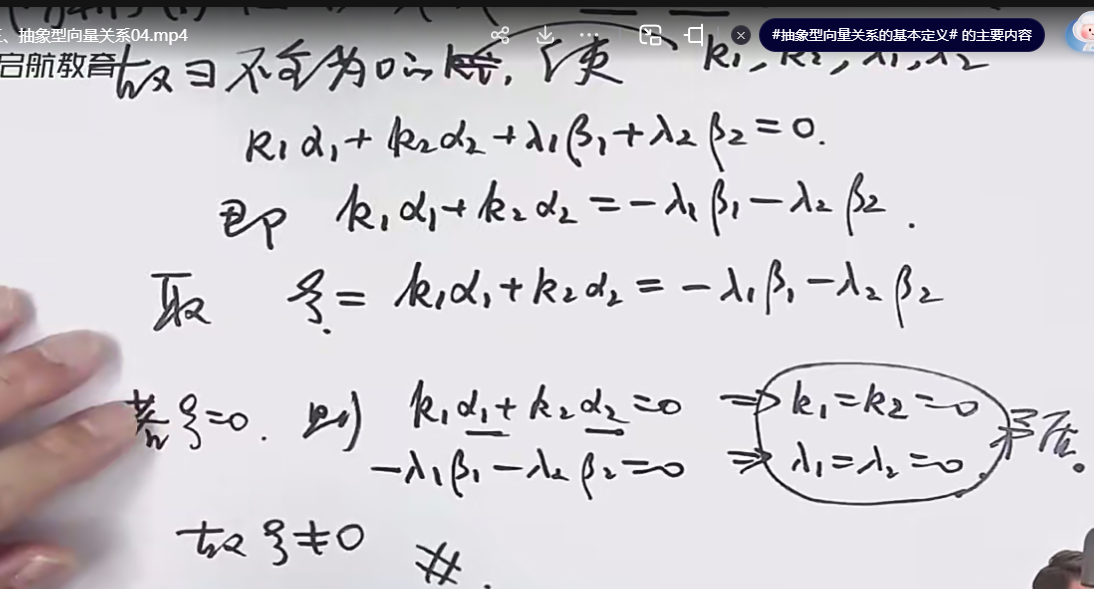 三、抽象型向量关系04.mp4
#抽象型向量关系的基本定义# 的主要内容
启航教育
故∃不全为0的 使 k₁, k₂, λ₁, λ₂
k₁α₁+k₂α₂+λ₁β₁+λ₂β₂=0.
即 k₁α₁+k₂α₂=-λ₁β₁-λ₂β₂.
取 ξ=k₁α₁+k₂α₂=-λ₁β₁-λ₂β₂
若ξ=0. 则 k₁α₁+k₂α₂=0 ⇒ k₁=k₂=0
-λ₁β₁-λ₂β₂=0 ⇒ λ₁=λ₂=0. 矛盾。
故ξ≠0 #.